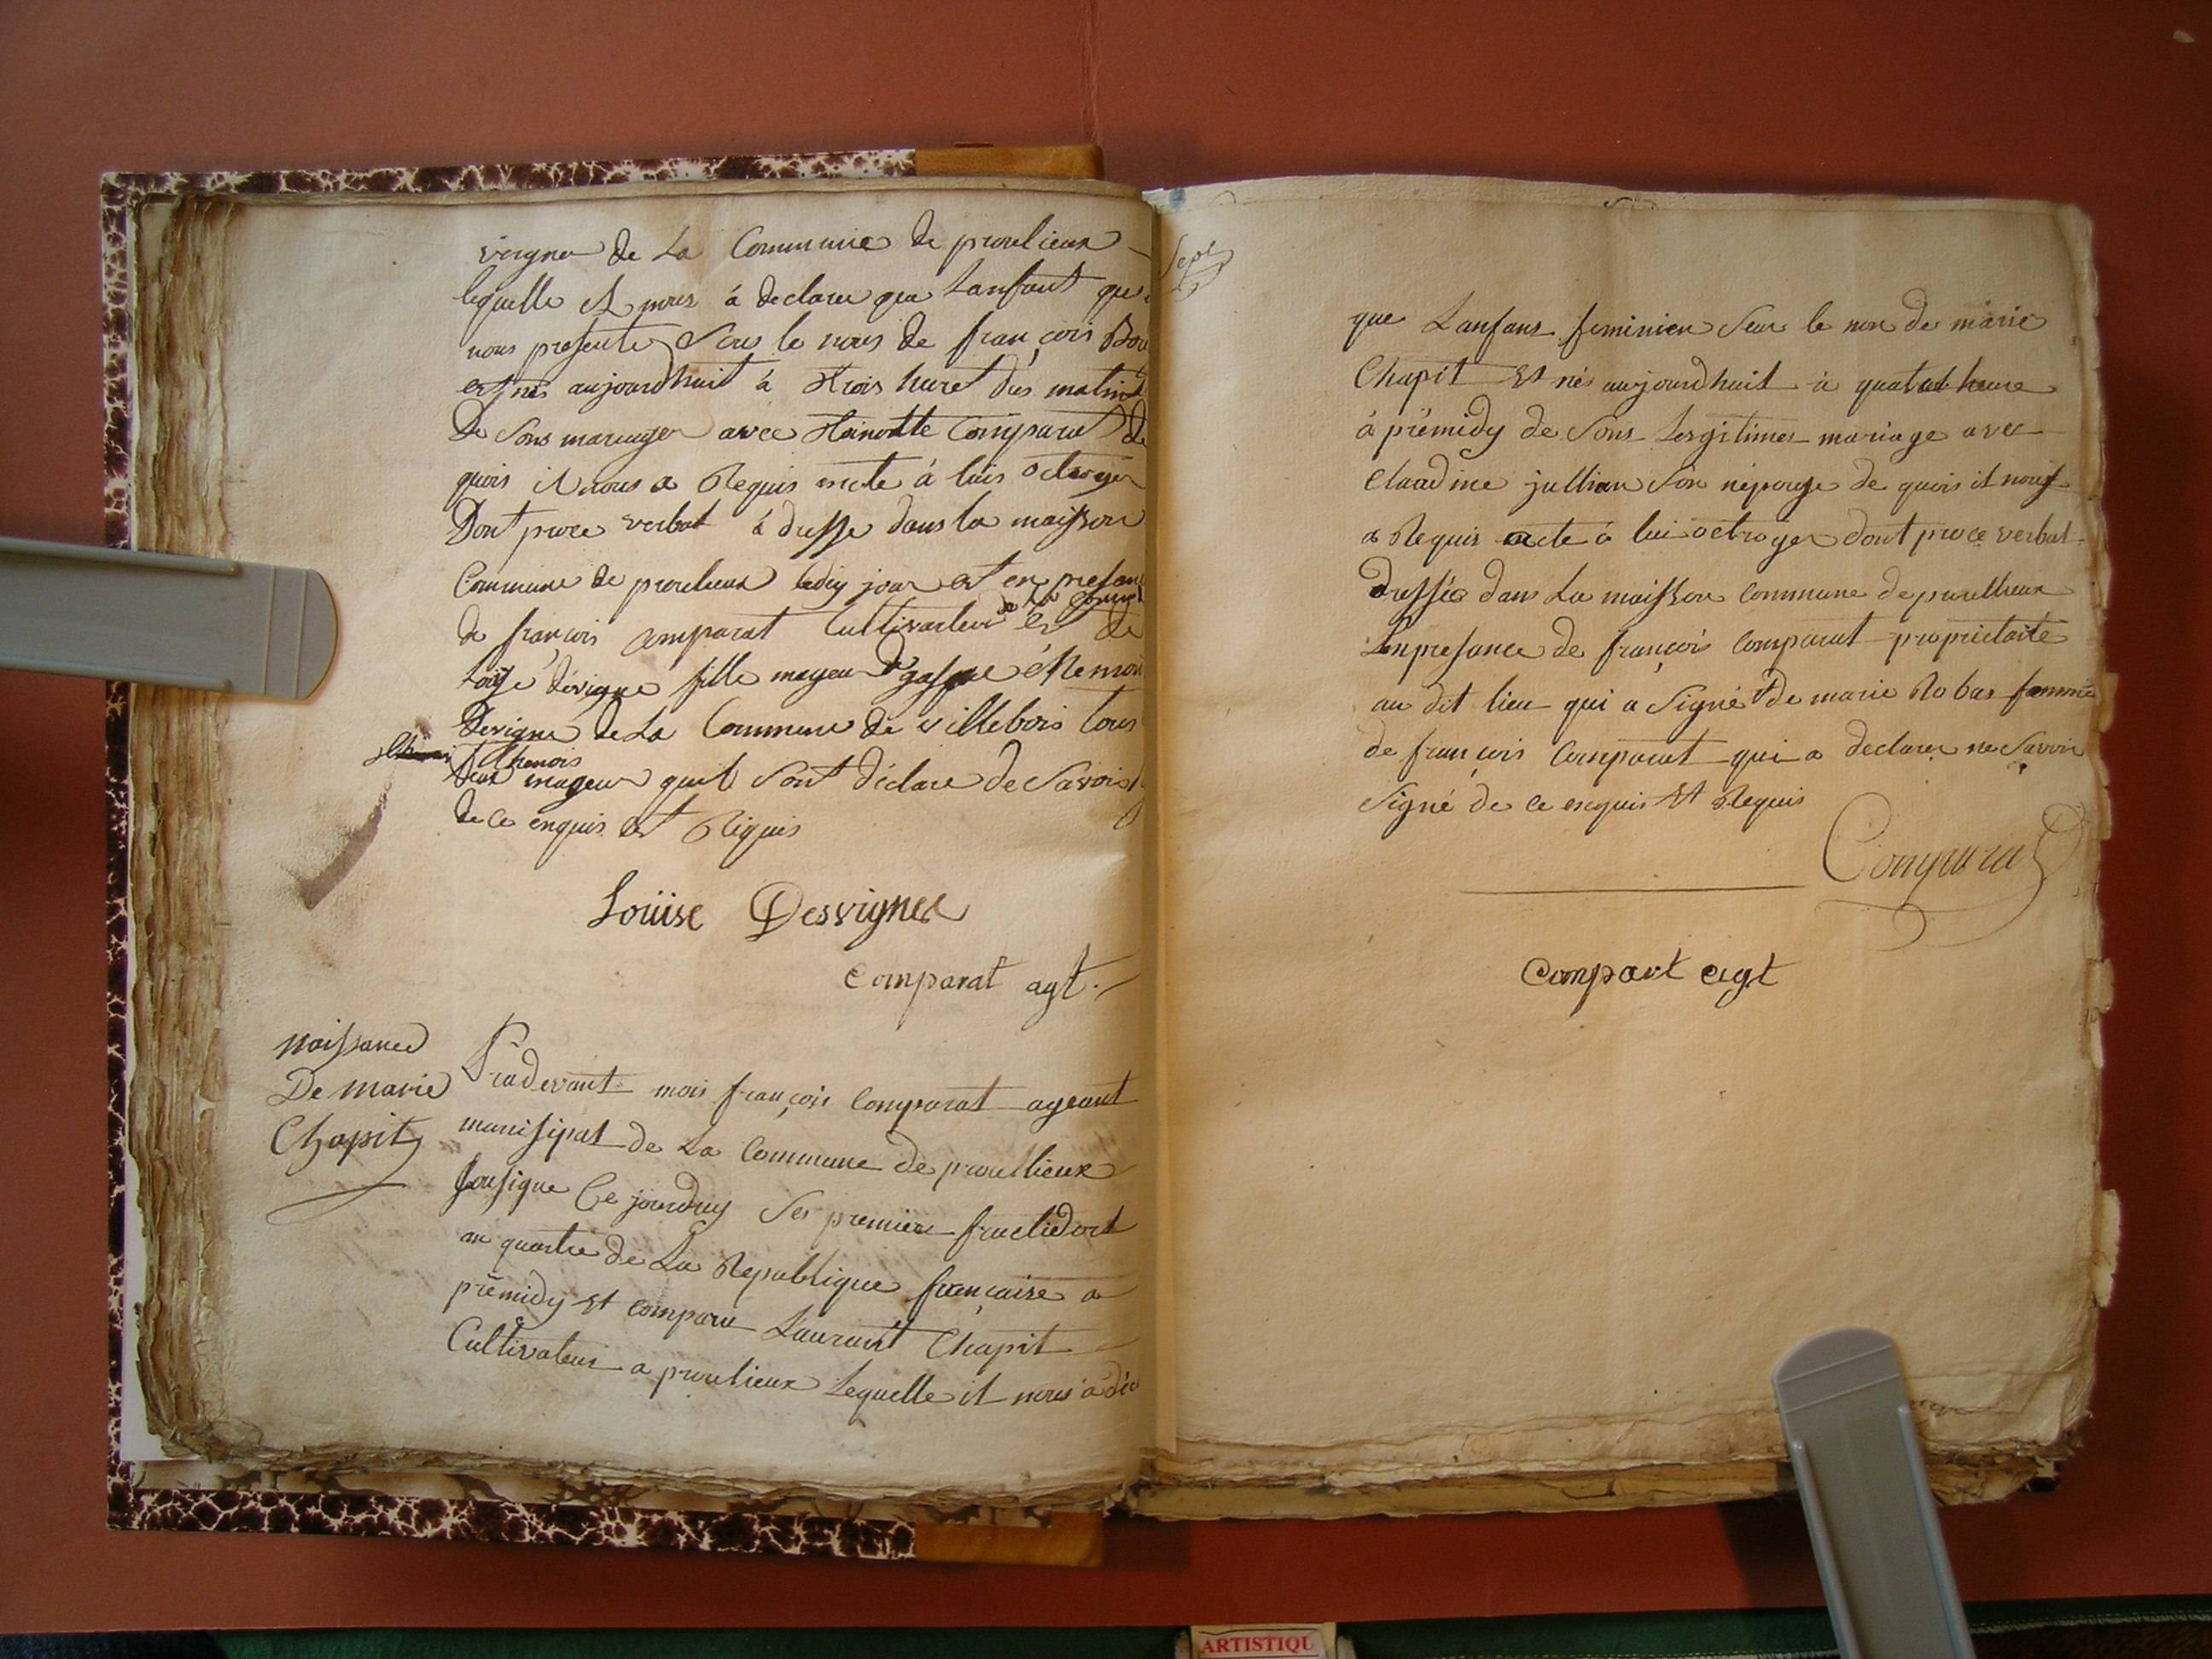 vergne de La Commune de prouelieux
lequelle Et nous à declarer que Lanfant qu
nous presente Sous le nous de françois Bou
est nés aujourdhuit à trois huret dus matins
De Sons mariager avec Comparat de
quois il nous a Requis acte à luis octroyer
Dont proce verbat à dresse dans la maisson
Commune de prouelieux ledis jour est en presan
de françois Comparat Cultivateur et de
de la Comm
Loise devigne fille mageu
Devigne de La Commune de villebois tous
Themois
mageur quil Sont declare de Savoir
de ce enquis et Riquis
Loüise Desvigne
Comparat agt.
Naissance
De marie
Chapit
Pradevant mois françois Comparat ageant
manisipat de La Commune de prouellieux
Sousigne Ce jourduy Ses premiere fructidort
an quatre de La Republique françaisse a
prémidy Et comparu Laurant Chapit
Cultivateur a prouelieux Lequelle it nous à déc
Sept
que Lanfans feminien Sour le non de marie
Chapit Et nés aujourdhuit à quatat heure
à prémidy de Sons Lesgitimes mariage avec
Claudine jullian Son néponge de quois it nous
a Requis acte à lui octroyer dont proce verbat
dressée dans La maisson Commune de prouellieux
Enpresance de françois Comparat proprietaite
au dit lieu qui a Signé et de marie Robas femme
de françois Comparat qui a declarer ne Savoir
Signé de ce enquis Et Requis
Comparat
Comparat agt
ARTISTIQU